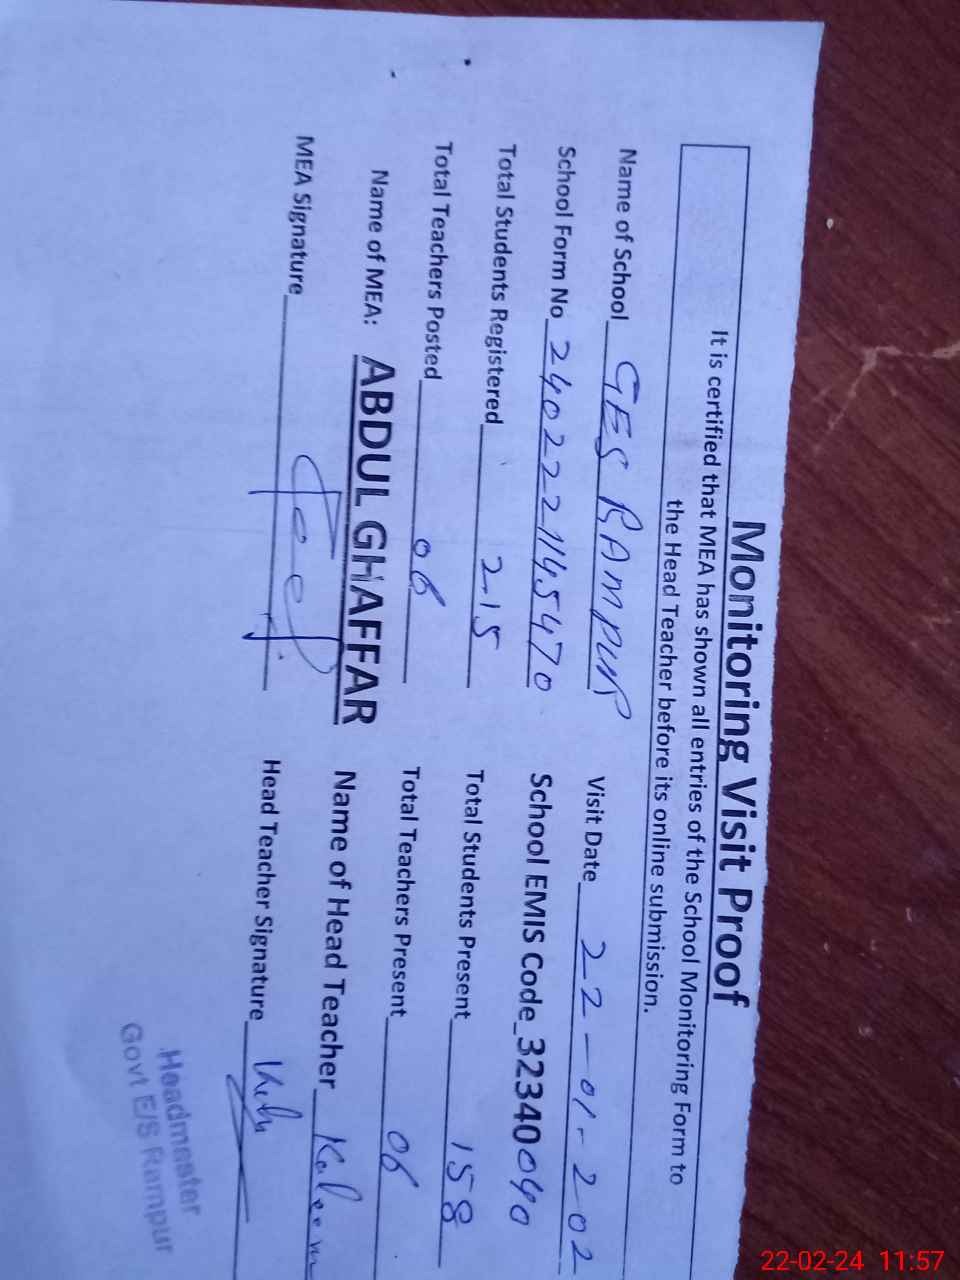 Monitoring Visit Proof
It is certified that MEA has shown all entries of the School Monitoring Form to
the Head Teacher before its online submission.
Name of School GES RAMPUR Visit Date 22-01-202
School Form No 2402221145470 School EMIS Code_32340040
Total Students Registered 215 Total Students Present 158
Total Teachers Posted 06 Total Teachers Present 06
Name of MEA: ABDUL GHAFFAR Name of Head Teacher Kaleem
MEA Signature Head Teacher Signature
Headmaster
Govt E/S Rampur
22-02-24 11:57